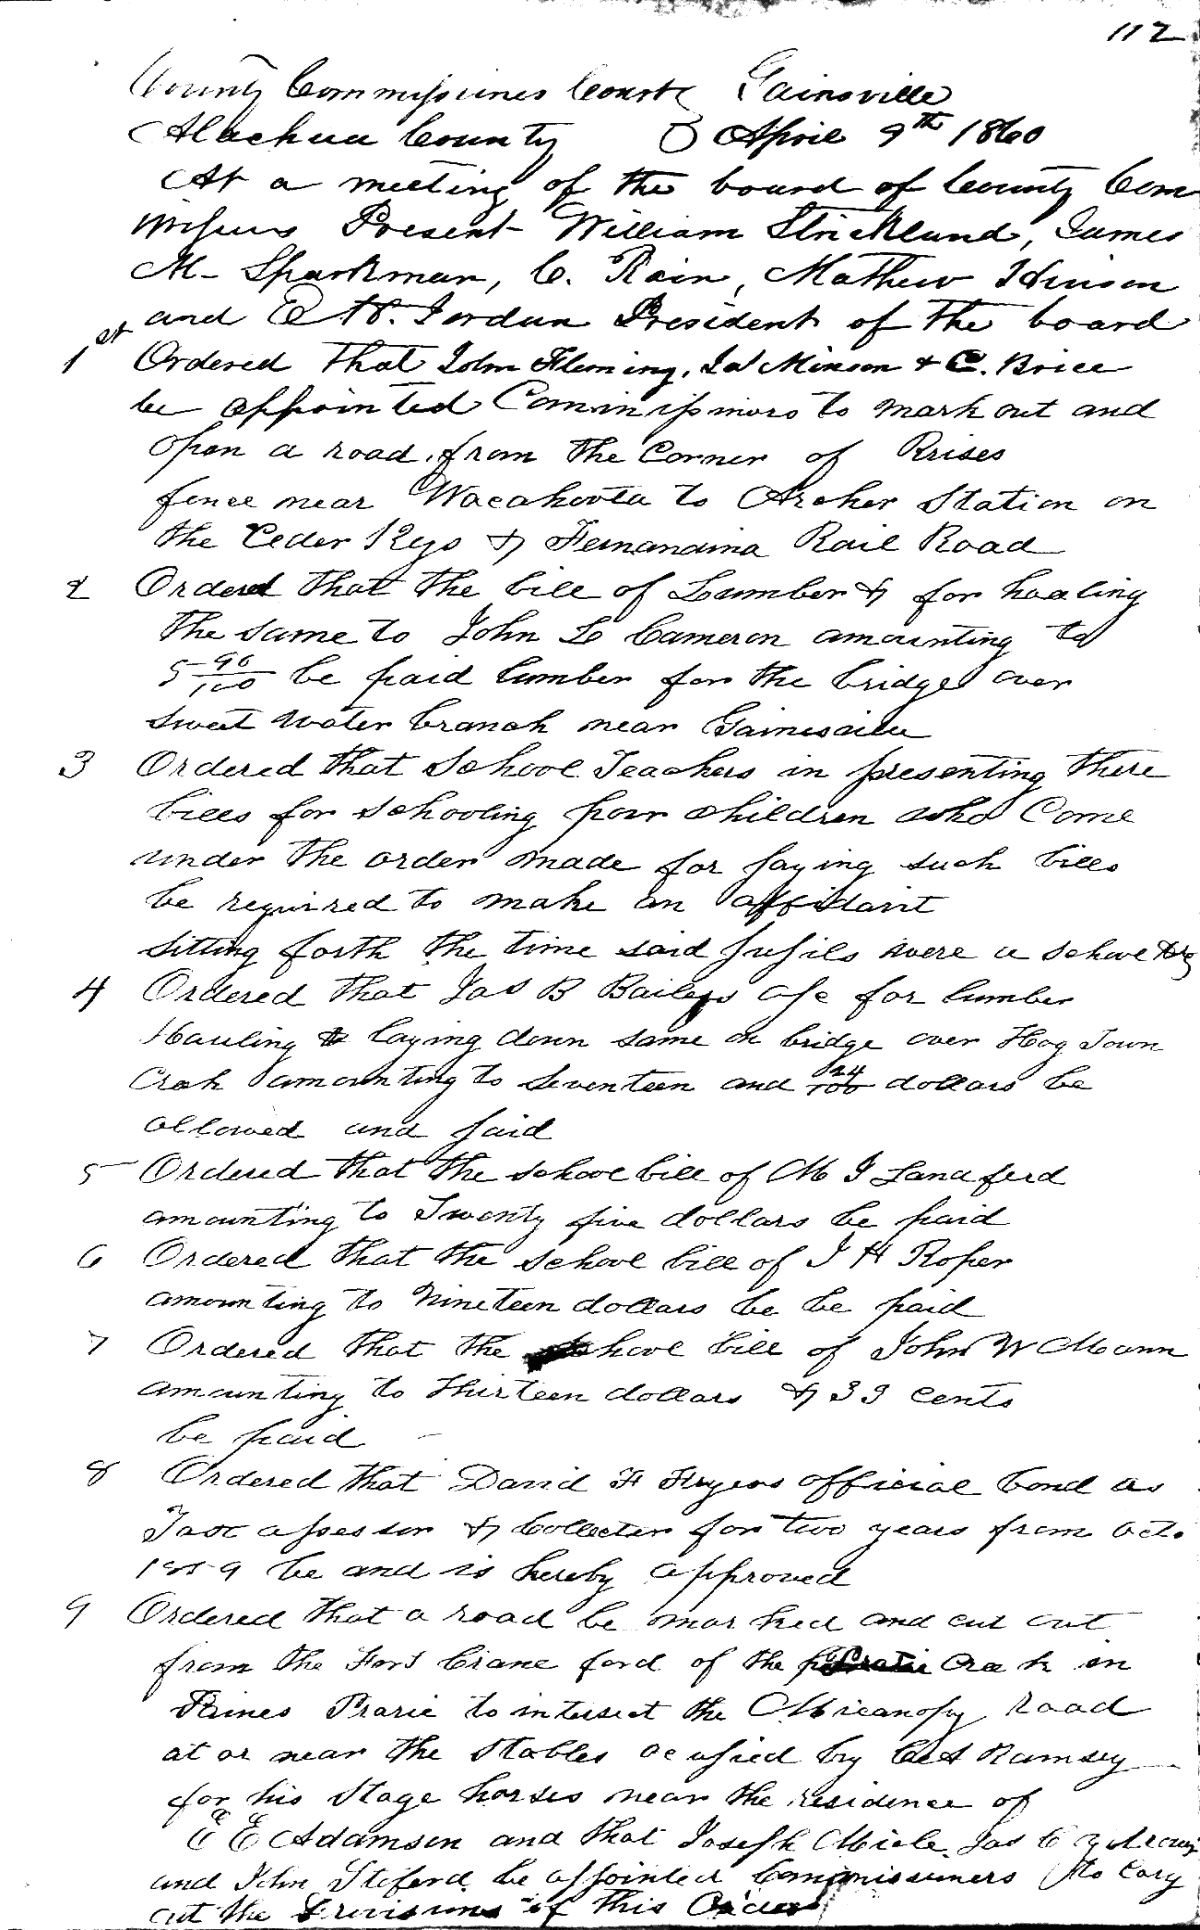 112
County Commissiones Court Gainsville
Alachua County April 9th 1860
At a meeting of the board of County Com
missiners Present William Strickland, James
M- Sparkman, C. Rain, Mathew Hinson
and Jordan President of the board
1st Ordered that John Fleming, Minson & C. Brice
be appointed Commissiners to mark out and
open a road from the Corner of Brises
fence near Wacahoota to Archer Station on
the Ceder Keys & Fernandina Rail Road
2 Ordered that the bill of Lumber & for hauling
the same to John L Cameron amounting to
5 96/100 be paid lumber for the bridge over
Sweet Water branch near
3 Ordered that School Teachers in presenting there
bills for schooling poor children who Come
under the order made for paying such bills
be required to make an affidavit
sitting forth the time said pupils were a
4 Ordered that Jas B Baileys a/c for lumber
Hauling & laying down same on bridge over Hog Town
Creek amounting to seventeen and 24/100 dollars be
allowed and paid
5 Ordered that the school bill of M J Landferd
amounting to Twenty five dollars be paid
6 Ordered that the school bill of J H Roper
amounting to Nineteen dollars be be paid
7 Ordered that the school bill of John W Mann
amounting to thirteen dollars & 33 cents
be paid
8 Ordered that David F official bond as
Tax assessor & Collecter for two years from Oct.
1859 be and is hereby approved
9 Ordered that a road be marked and cut out
from the Fort Crane ford of the Creek in
Paines Prarie to intersect the Micanopy road
at or near the Stables ocupied by Ramsey
for his Stage horses near the residence of
E E Adamson and that Joseph Jas
and John be appointed Commissiuners to cary
out the Provisions of this Order